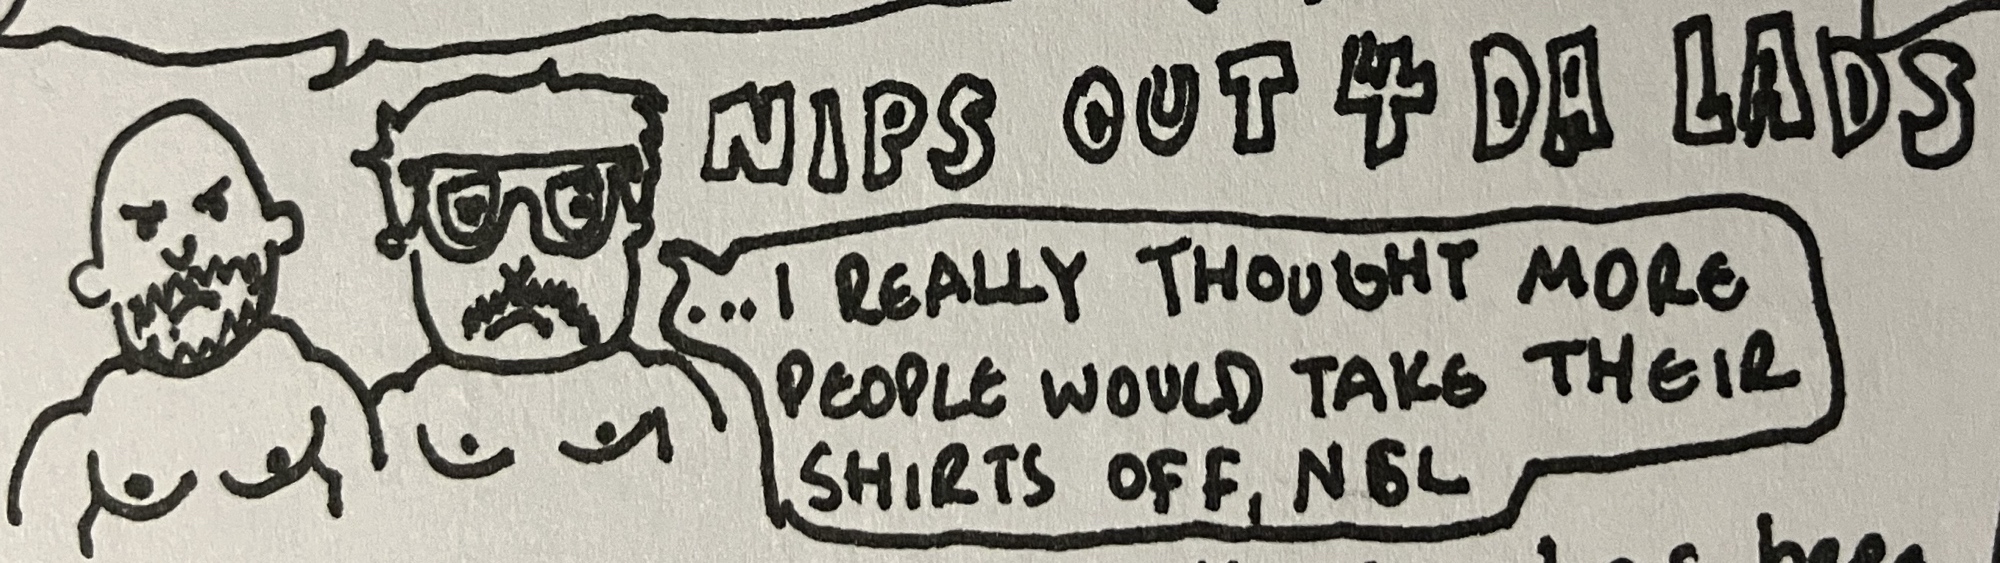 NIPS OUT 4 DA LADS
...I REALLY THOUGHT MORE
PEOPLE WOULD TAKE THEIR
SHIRTS OFF, NGL
has been